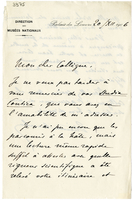 DIRECTION
DES
MUSÉES NATIONAUX
Palais du Louvre, 20
Mon cher Collègue,
Je ne veux pas tarder à
vous remercier de vos Studia
Pontica, que vous avez eu
l'amabilité de m'adresser.
Je n'ai pu encore que les
parcourir à la hâte, mais
une lecture même rapide
suffit à
rigueur scientifique a été
relevé votre itinéraire et